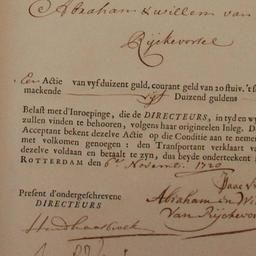 Abraham & willem van
Rijckevorsel
Een Actie van vyf duizent guld, courant geld van 20 stuiv. 't
mackende vijf Duizend guldens
Belast met d'Inroepinge, die de DIRECTEURS, in tyd en wy
zullen vinden te behooren, volgens haar origineelen Inleg. De
Acceptant bekent dezelve Actie op die Conditie aan te neme
met volkomen genoegen: den Transportant verklaart v
dezelve voldaan en betaalt te zyn, dus beyde onderteekent
ROTTERDAM den 6e Novemb. 1720
Present d'ondergeschrevene
DIRECTEUREN
Abraham en Wi
Van Rijckevor